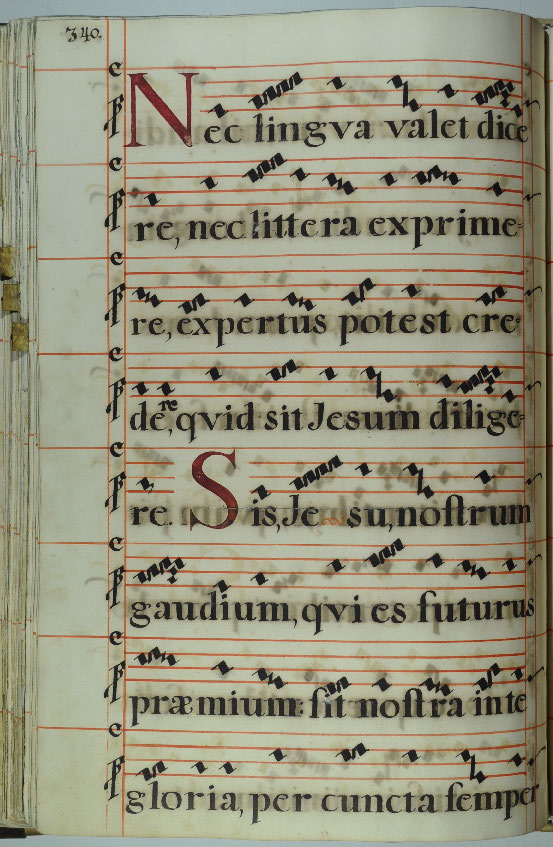 340.
Nec lingva valet dice
re, nec littera exprime=
re, expertus potest cre=
dere, qvid sit Jesum dilige=
re. Sis, Je su, noſtrum
gaudium, qvi es futurus
præmium: ſit noſtra in te
gloria, per cuncta ſemper